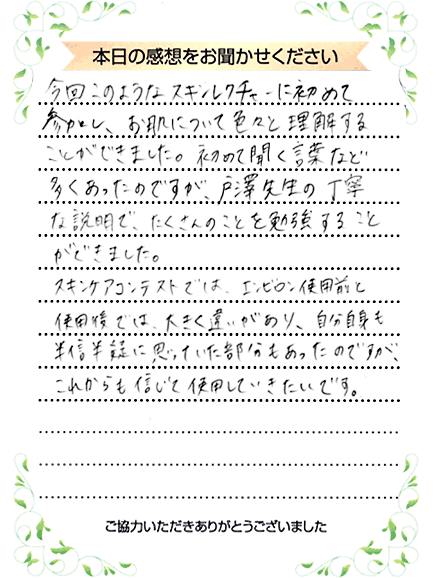 本日の感想をお聞かせください
今回このようなスキンレクチャーに初めて
参加し、お肌について色々と理解する
ことができました。初めて聞く言葉など
多くあったのですが、戸澤先生の丁寧
な説明で、たくさんのことを勉強すること
ができました。
スキンケアコンテストでは、エンビロン使用前と
使用後では、大きく違いがあり、自分自身も
半信半疑に思っていた部分もあったのですが、
これからも信じて使用していきたいです。
ご協力いただきありがとうございました